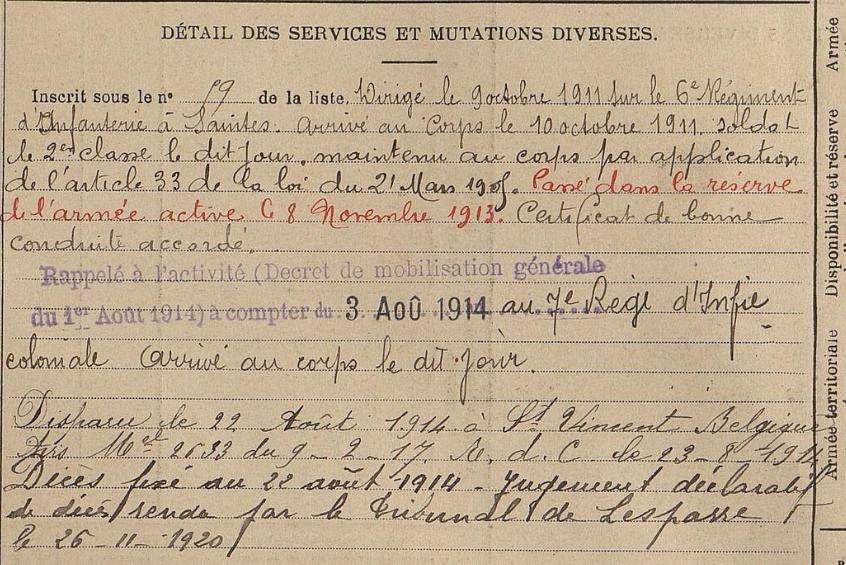 DÉTAIL DES SERVICES ET MUTATIONS DIVERSES.
Inscrit sous le n° 59 de la liste. Dirigé le 9 octobre 1911 sur le 6e Régiment
d'Infanterie à Saintes. arrivé au Corps le 10 octobre 1911. soldat
de 2e classe le dit jour, maintenu au corps par application
de l'article 33 de la loi du 21 Mars 1905. Passé dans la réserve
de l'armée active le 8 Novembre 1913. Certificat de bonne
conduite accordé.
Rappelé à l'activité (Decret de mobilisation générale
du 1er Août 1914) à compter du 3 AOÛ 1914 au 7e Régt d'Infie
coloniale arrivé au corps le dit jour.
Disparu le 22 Août 1914 à St Vincent Belgique
Mel 2633 du 9-2-17. R. d. C le 23-8-1914
Décès fixé au 22 août 1914 - Jugement déclaratif
de décès rendu par le Tribunal de Lesparre
le 26-11-1920
Armée
Disponibilité et réserve
Armée territoriale